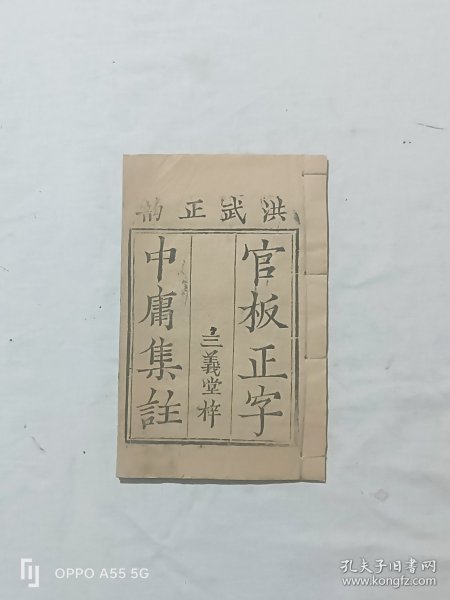 洪武正韵
官板正字
三義堂梓
中庸集註
OPPO A55 5G
孔夫子旧书网
www.kongfz.com